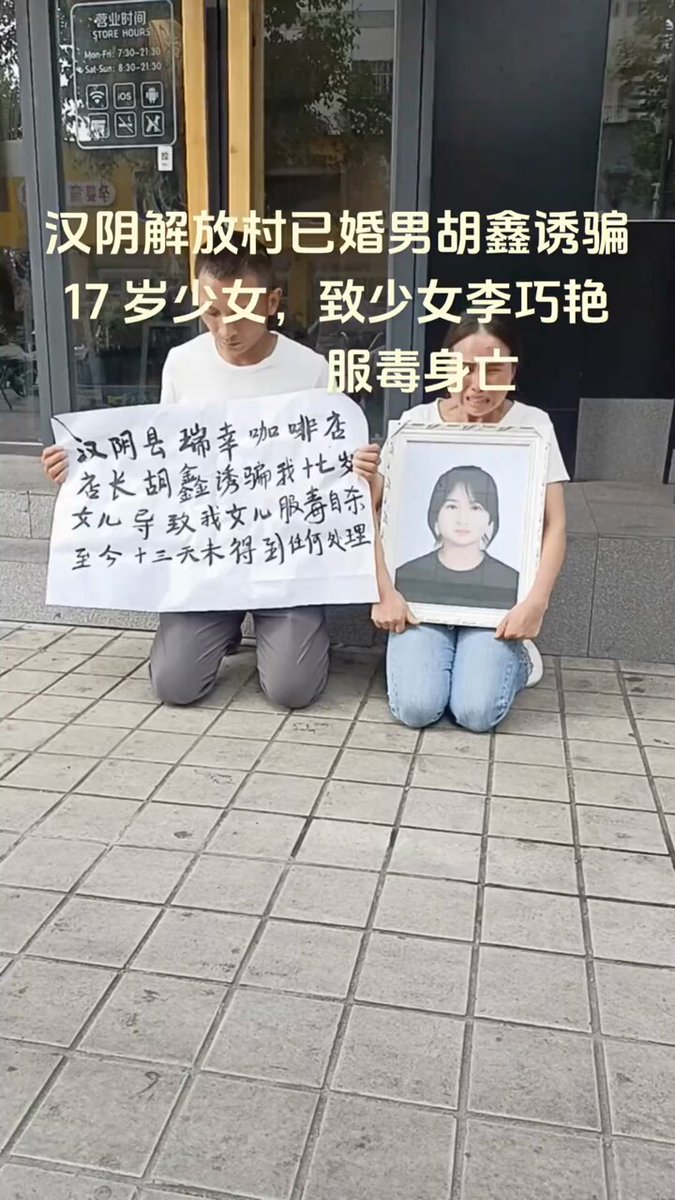 营业时间
STORE HOURS
Mon-Fri: 7:30-21:30
Sat-Sun: 8:30-21:30
iOS
汉阴解放村已婚男胡鑫诱骗
17岁少女，致少女李巧艳
服毒身亡
汉阴县瑞幸咖啡店
店长胡鑫诱骗我十七岁
女儿导致我女儿服毒自杀
至今十三天未得到任何处理